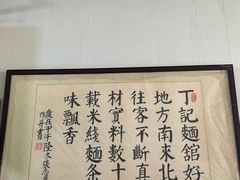 丁記麵舘好
地方南來北
往客不斷真
材實料數十
載米綫麵条
味飄香
歲在甲午隆冬張志
作并書